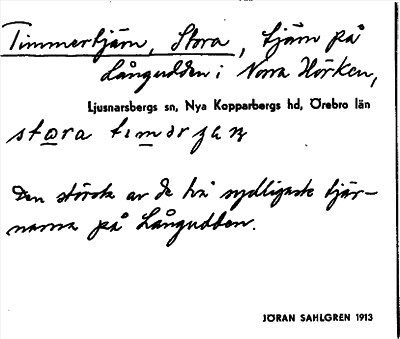 Timmertjärn, Stora, tjärn på
Långudden i Norra Hörken,
Ljusnarsbergs sn, Nya Kopparbergs hd, Örebro län
stora timərjan
Den största av de två sydligaste tjär-
narna på Långudden.
JÖRAN SAHLGREN 1913